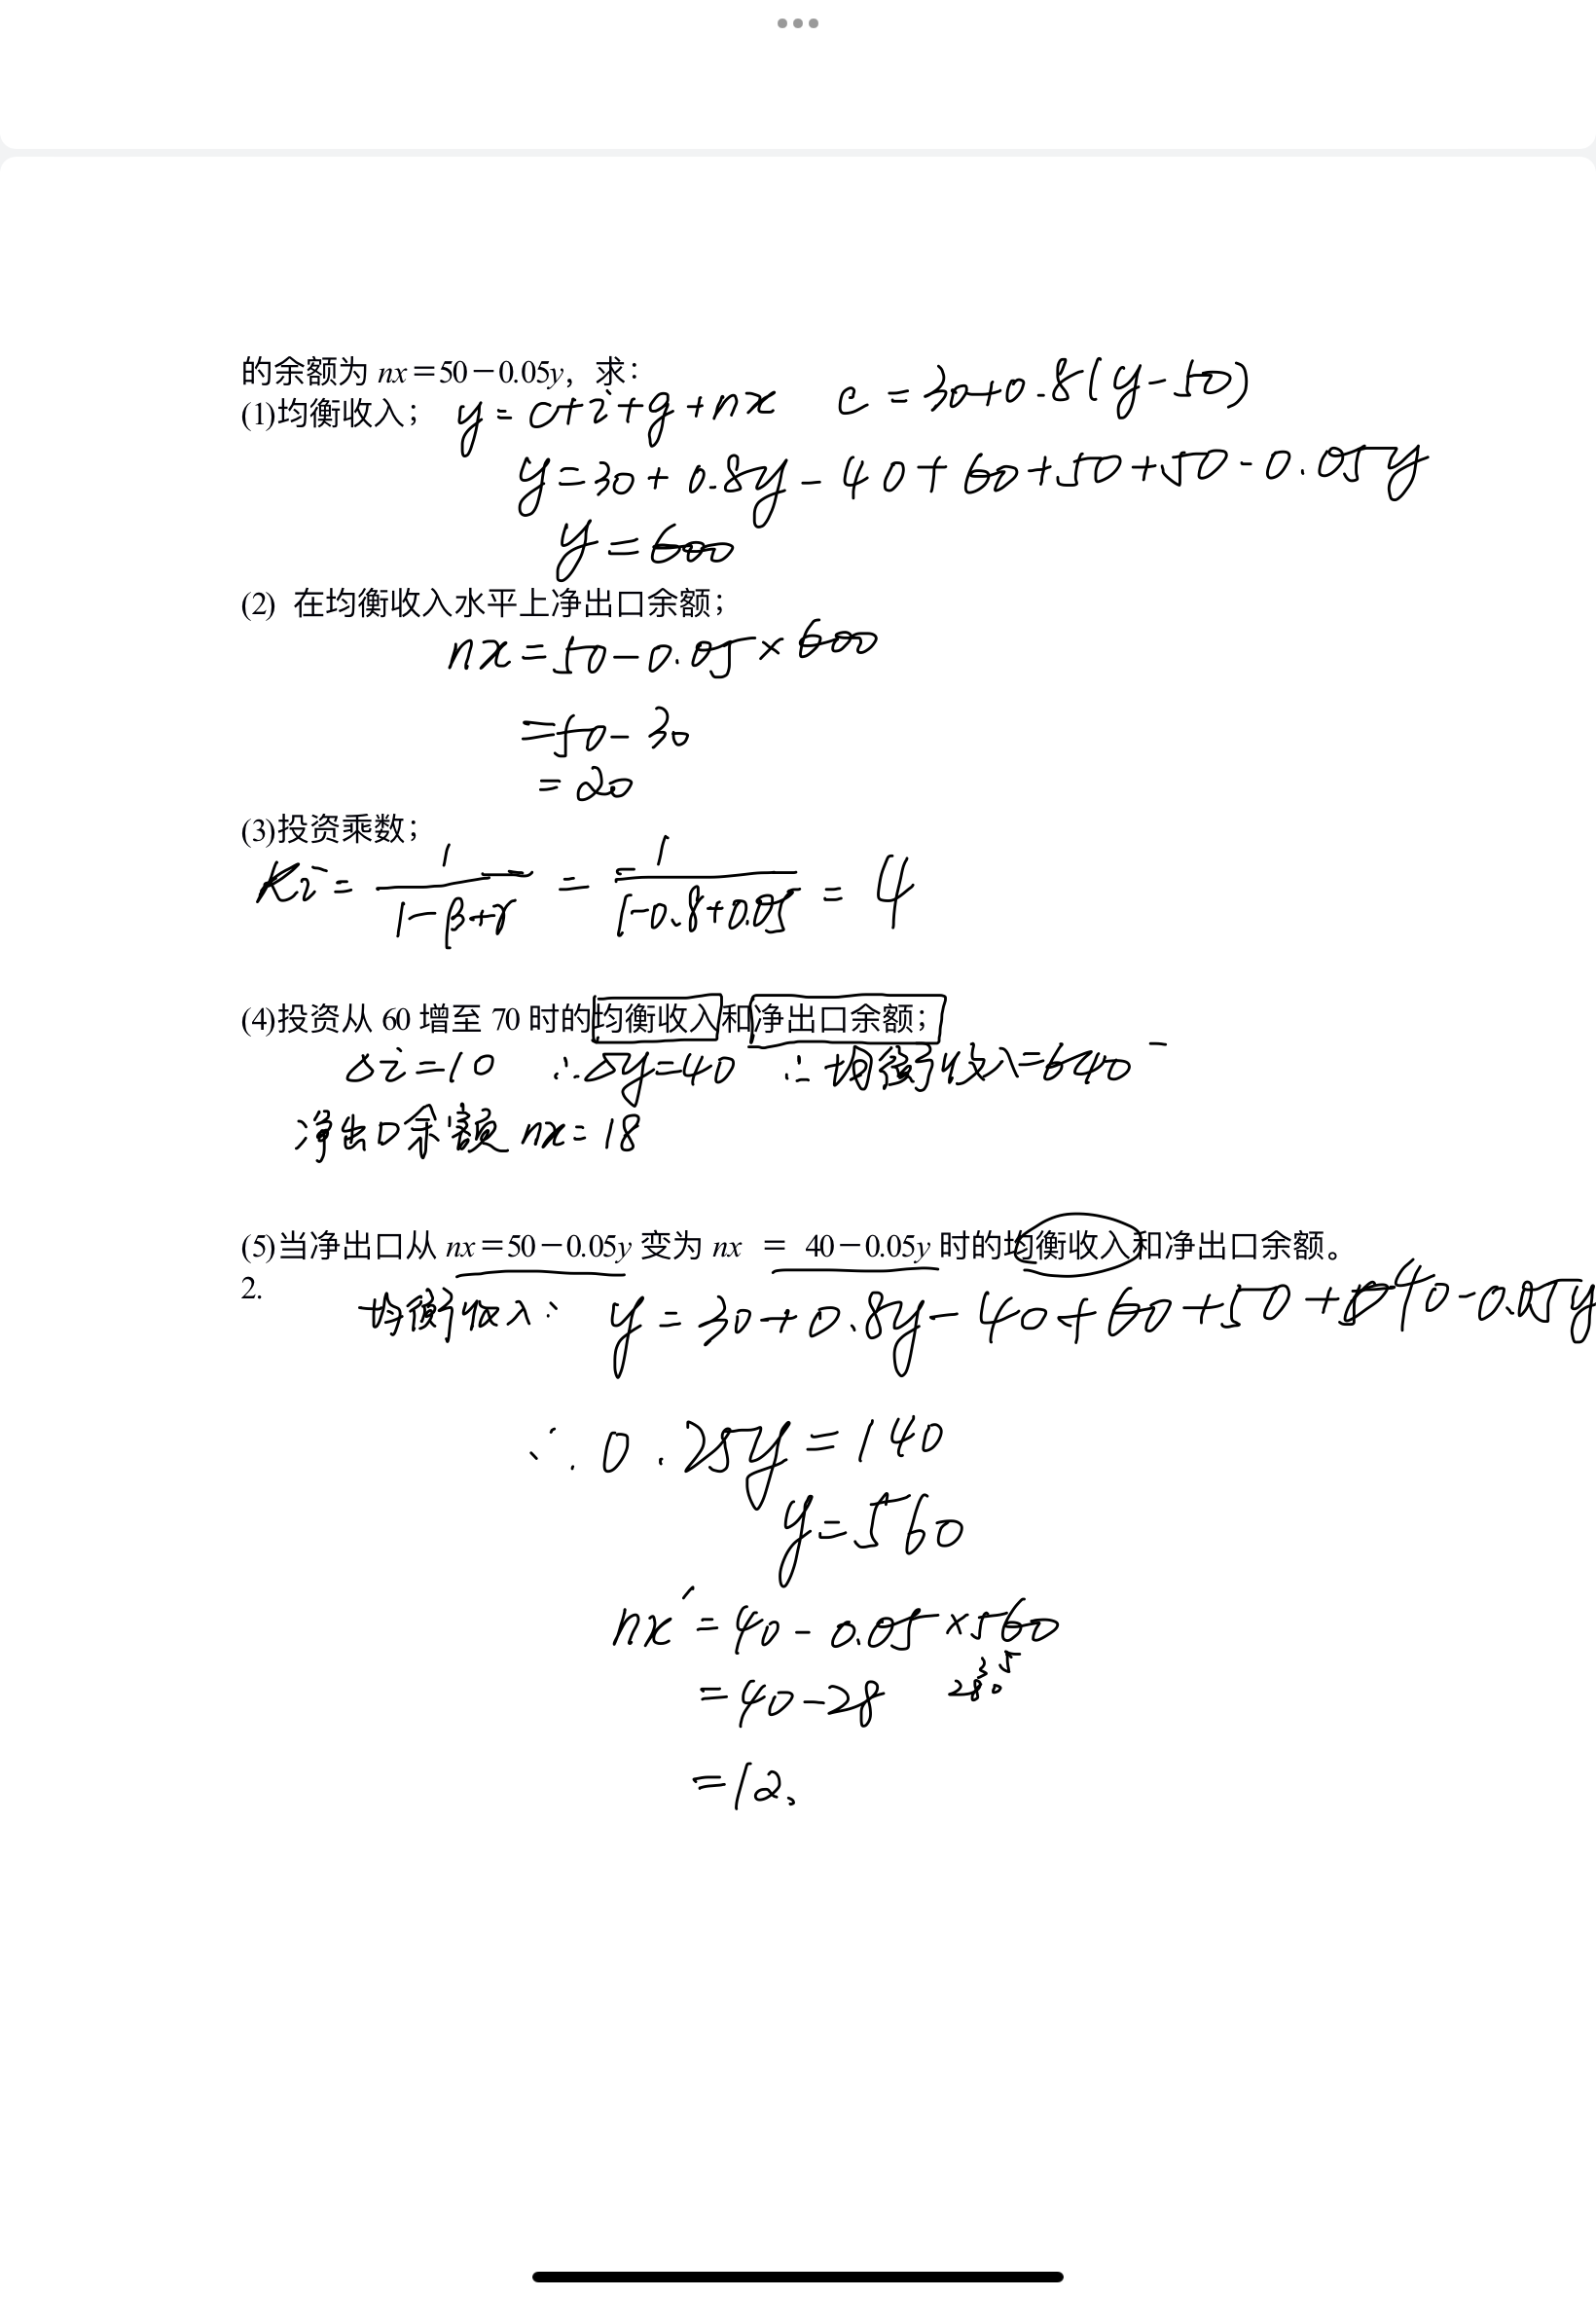 的余额为 nx＝50－0.05y，求：
(1)均衡收入； y = c+i+g+nx c = 30+0.8(y-50)
y=30+0.8y-40+60+50+50-0.05y
y=600
(2) 在均衡收入水平上净出口余额；
nx=50-0.05×600
=50-30
=20
(3)投资乘数；
Ki= 1/(1-β+γ) = 1/(1-0.8+0.05) = 4
(4)投资从 60 增至 70 时的均衡收入和净出口余额；
Δi=10 ∴Δy=40 ∴均衡收入=640
净出口余额 nx=18
(5)当净出口从 nx＝50－0.05y 变为 nx ＝ 40－0.05y 时的均衡收入和净出口余额。
2.
均衡收入: y=30+0.8y-40+60+50+40-0.05y
∴0.25y=140
y=560
nx′=40-0.05×560
=40-28
=12.